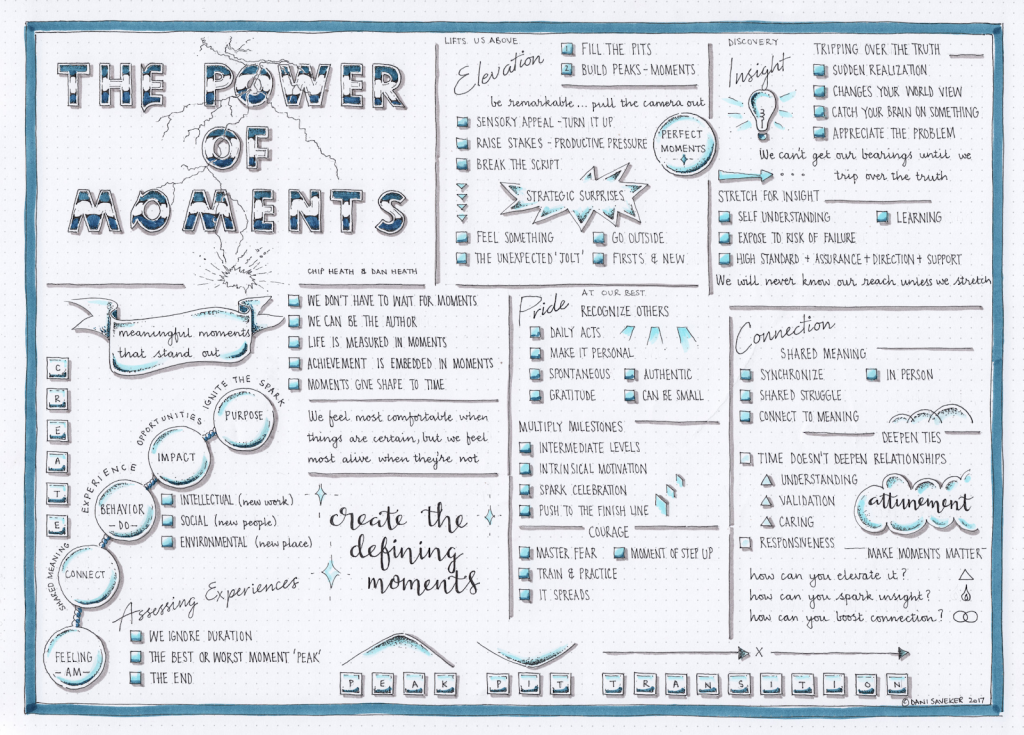 THE POWER
OF
MOMENTS
CHIP HEATH & DAN HEATH
LIFTS US ABOVE
Elevation
1 FILL THE PITS
2 BUILD PEAKS-MOMENTS
be remarkable... pull the camera out
SENSORY APPEAL - TURN IT UP
RAISE STAKES - PRODUCTIVE PRESSURE
BREAK THE SCRIPT
PERFECT
MOMENTS
STRATEGIC SURPRISES
FEEL SOMETHING
GO OUTSIDE
THE UNEXPECTED 'JOLT'
FIRSTS & NEW
DISCOVERY
Insight
TRIPPING OVER THE TRUTH
SUDDEN REALIZATION
CHANGES YOUR WORLD VIEW
CATCH YOUR BRAIN ON SOMETHING
APPRECIATE THE PROBLEM
We can't get our bearings until we
trip over the truth
STRETCH FOR INSIGHT
SELF UNDERSTANDING
LEARNING
EXPOSE TO RISK OF FAILURE
HIGH STANDARD + ASSURANCE + DIRECTION + SUPPORT
We will never know our reach unless we stretch
meaningful moments
that stand out
WE DON'T HAVE TO WAIT FOR MOMENTS
WE CAN BE THE AUTHOR
LIFE IS MEASURED IN MOMENTS
ACHIEVEMENT IS EMBEDDED IN MOMENTS
MOMENTS GIVE SHAPE TO TIME
We feel most comfortable when
things are certain, but we feel
most alive when they're not
CREATE
IGNITE THE SPARK
PURPOSE
OPPORTUNITIES
IMPACT
EXPERIENCE
BEHAVIOR
-DO-
SHARED MEANING
CONNECT
FEELING
-AM-
INTELLECTUAL (new work)
SOCIAL (new people)
ENVIRONMENTAL (new place)
create the
defining
moments
Assessing Experiences
WE IGNORE DURATION
THE BEST OR WORST MOMENT 'PEAK'
THE END
AT OUR BEST
Pride
RECOGNIZE OTHERS
DAILY ACTS
MAKE IT PERSONAL
SPONTANEOUS
AUTHENTIC
GRATITUDE
CAN BE SMALL
MULTIPLY MILESTONES
INTERMEDIATE LEVELS
INTRINSICAL MOTIVATION
SPARK CELEBRATION
PUSH TO THE FINISH LINE
COURAGE
MASTER FEAR
MOMENT OF STEP UP
TRAIN & PRACTICE
IT SPREADS
Connection
SHARED MEANING
SYNCHRONIZE
IN PERSON
SHARED STRUGGLE
CONNECT TO MEANING
DEEPEN TIES
TIME DOESN'T DEEPEN RELATIONSHIPS
UNDERSTANDING
VALIDATION
CARING
attunement
RESPONSIVENESS
MAKE MOMENTS MATTER
how can you elevate it?
how can you spark insight?
how can you boost connection?
X
PEAK PIT TRANSITION
© DANI SAVEKER 2017